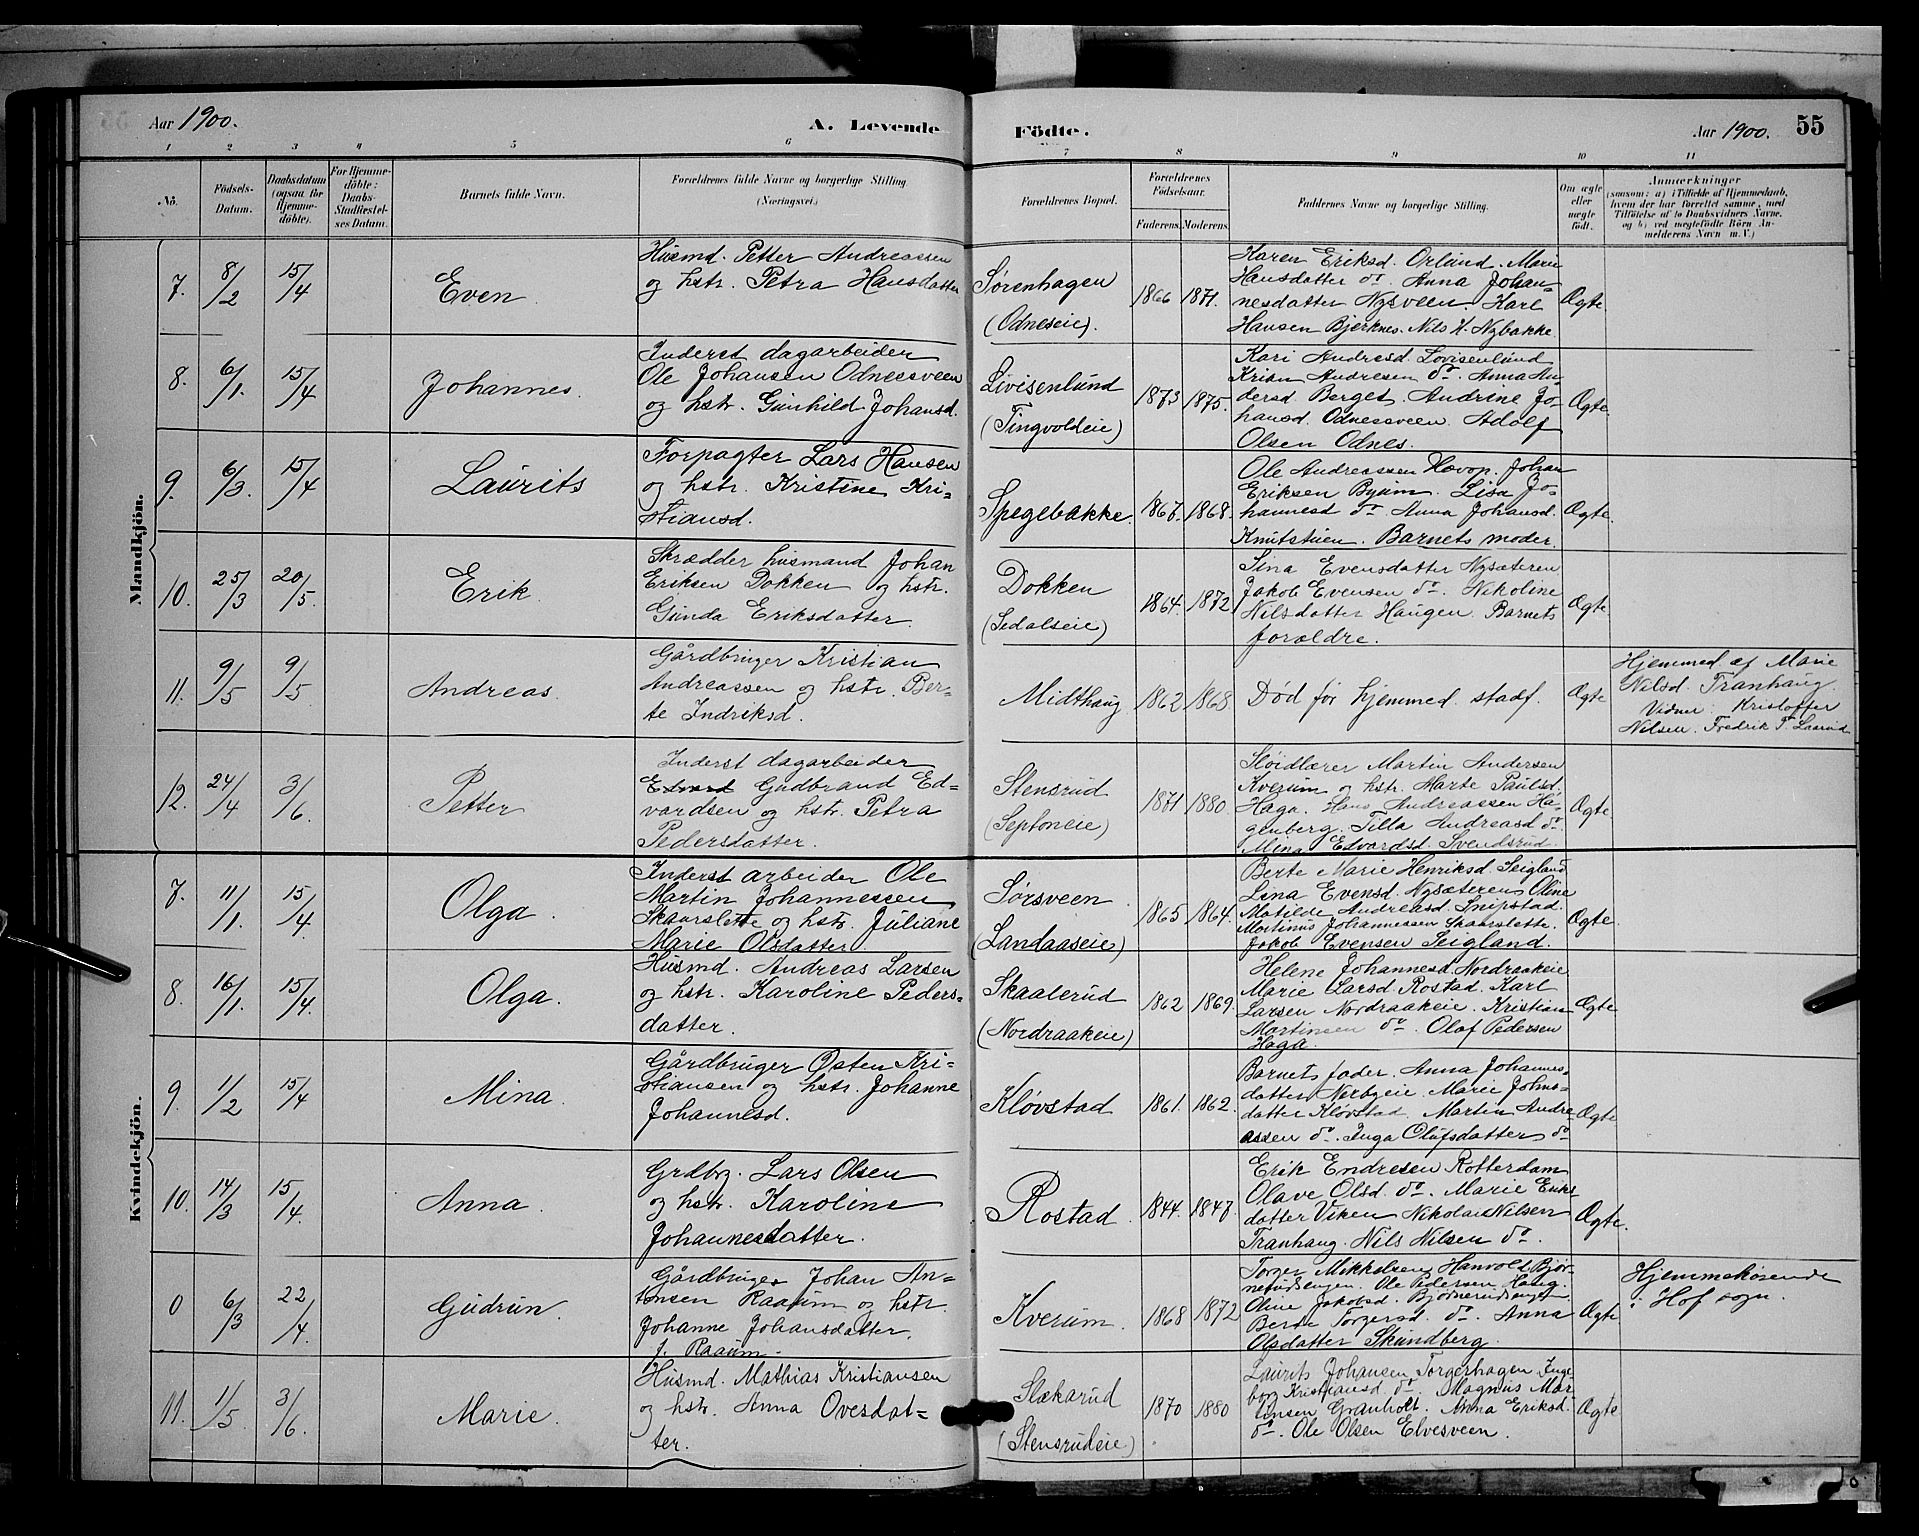 Aar 1900.
A. Levende
Födte.
Aar 1900.
55
1 2 3 4 5 6 7 8 9 10 11
No.
Födsels-Datum.
Daabsdatum (ogsaa for Hjemme-döbte).
For Hjemme-döbte: Daabs-Stadfæstel-ses Datum.
Barnets fulde Navn.
Forældrenes fulde Navne og borgerlige Stilling (Næringsvei.)
Forældrenes Bopæl.
Forældrenes Födselsaar.
Faderens. Moderens.
Faddernes Navne og borgerlige Stilling.
Om ægte eller uægte födt.
Anmærkninger
(saasom: a) i Tilfælde af Hjemmedaab, hvem der har forrettet samme, med Tilföielse af to Daabsvidners Navne. og b) ved uægtefödte Börn An-melderens Navn m. V.)
Mandkjön.
7. 8/2 15/4 Even.
Husmd. Petter Andreassen
og hstr. Petra Hansdatter
Sørenhagen
(Odneseie).
1866 1871.
Karen Eriksd. Orlund. Marie
Hansdatter do. Anna Johan-
nesdatter Nysveen. Karl
Hansen Bjerknes. Nils H. Nybakke
Ægte
8. 6/1. 15/4 Johannes.
Inderst dagarbeider
Ole Johansen Odnessveen
og hstr. Gunhild Johansd.
Livisenlund
(Tingvoldeie)
1873 1875.
Kari Andresd. Lovisenlund
Krian Andresen do. Anna An-
dersd Berget. Andrine Jo-
hansd. Odnessveen. Adolf
Olsen Odnes.
Ægte
9. 6/3. 15/4 Laurits
Forpagter Lars Hansen
og hstr. Kristine Kri-
stiansd.
Spegebakke.
1867. 1868.
Ole Andreassen Hovop. Johan
Eriksen Byum. Lisa Jo-
hannesd do. Anna Johansd.
Knutstuen. Barnets moder.
Ægte.
10. 25/3 20/5. Erik.
Skrædder husmand Johan
Eriksen Dokken og hstr.
Gunda Eriksdatter.
Dokken
(Sedalseie)
1864. 1872
Sina Evensdatter Nysæteren
Jakob Evensen do. Nikoline
Nilsdatter Haugen. Barnets
forældre.
Ægte
11. 9/5 9/5 Andreas.
Gårdbruger Kristian
Andreassen og hstr. Ber-
te Indriksd.
Midthaug
1862 1868.
Død før hjemmed. stadf.
Ægte
Hjemmed af Marie
Nilsd. Tranhaug.
Vidner: Kristoffer
Nilsen. Fredrik T. Laarud
12. 24/4 3/6 Petter
Inderst dagarbeider
Edvard Gudbrand Ed-
vardsen og hstr. Petra
Pedersdatter.
Stensrud
(Septoneie)
1871 1880.
Sløidlærer Martin Andersen
Kverum og hstr. Marte Paulsd.
Haga. Hans Andreassen Ha-
genberg. Tilla Andreasd do.
Mina Edvardsd. Svendsrud.
Ægte
Kvindekjön.
7. 11/1. 15/4 Olga.
Inderst arbeider Ole
Martin Johannessen
Skaarslette og hstr. Juliane
Marie Olsdatter
Sørsveen
(Landaaseie)
1865 1864.
Berte Marie Henriksd. Seigland
Lina Evensd. Nysæteren Oline
Matilde Andreasd. Snipstad.
Martinus Johannessen Skaarslette.
Jakob Evensen Seigland.
Ægte.
8. 16/1. 15/4. Olga.
Husmd. Andreas Larsen
og hstr. Karoline Peders-
datter.
Skaalerud
(Nordraakeie)
1862 1869.
Helene Johannesd. Nordraakeie
Marie Larsd Rostad. Karl
Larsen Nordraakeie. Kristian
Martinsen do. Olaf Pedersen
Haga.
Ægte
9. 1/2 15/4 Mina.
Gårdbruger Østen Kri-
stiansen og hstr. Johanne
Johannesd.
Kløvstad
1861. 1862.
Barnets fader. Anna Johannes-
datter Nerbyeie. Marie Johns-
datter Kløvstad. Martin Andre-
assen do. Inga Olufsdatter do
Ægte
10. 14/3 15/4. Anna.
Grdbrg. Lars Olsen
og hstr. Karoline
Johannesdatter.
Rostad.
1844. 1847.
Erik Endresen Rotterdam
Olave Olsd. do. Marie Eriks
datter Viken Nikolai Nilsen
Tranhaug. Nils Nilsen do.
Ægte.
0 6/3 22/4. Gudrun.
Gårdbruger Johan An-
tonsen Raaum og hstr.
Johanne Johansdatter,
f. Raaum.
Kverum.
1868 1872
Torger Mikkelsen Hanvold Bjør-
nerudsengen. Ole Pedersen Haug.
Oline Jakobsd. Bjørnerudsengen
Berte Torgersd. do. Anna
Olsdatter Skundberg.
Ægte
Hjemmehøsende
i Hof sogn.
11. 1/5 3/6. Marie.
Husmd. Mathias Kristiansen
og hstr. Anna Ovesdat-
ter.
Slækarud
(Stensrudeie)
1870 1880
Laurits Johansen Torgerhagen. Inge
borg Kristiansd. do. Magnus Mar
tinsen Granholt. Anna Eriksd.
do. Ole Olsen Elvesveen.
Ægte